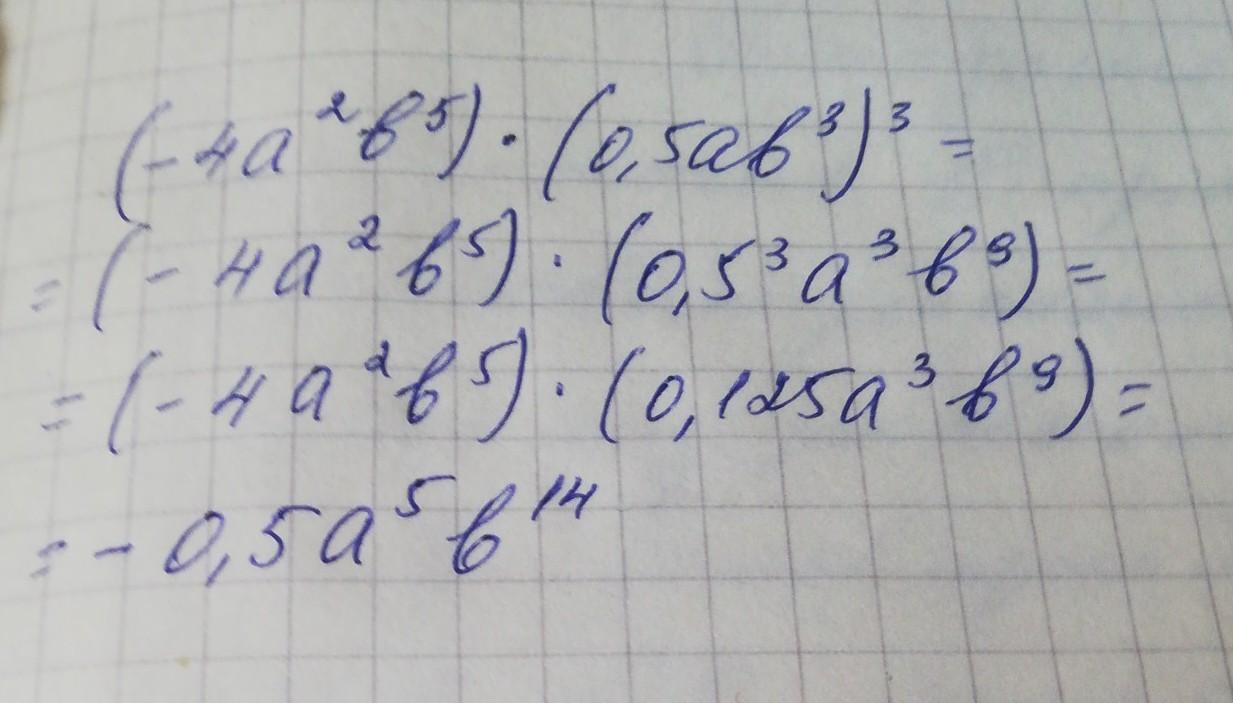 (-4a²b⁵)·(0,5ab³)³=
=(-4a²b⁵)·(0,5³a³b⁹)=
=(-4a²b⁵)·(0,125a³b⁹)=
=-0,5a⁵b¹⁴